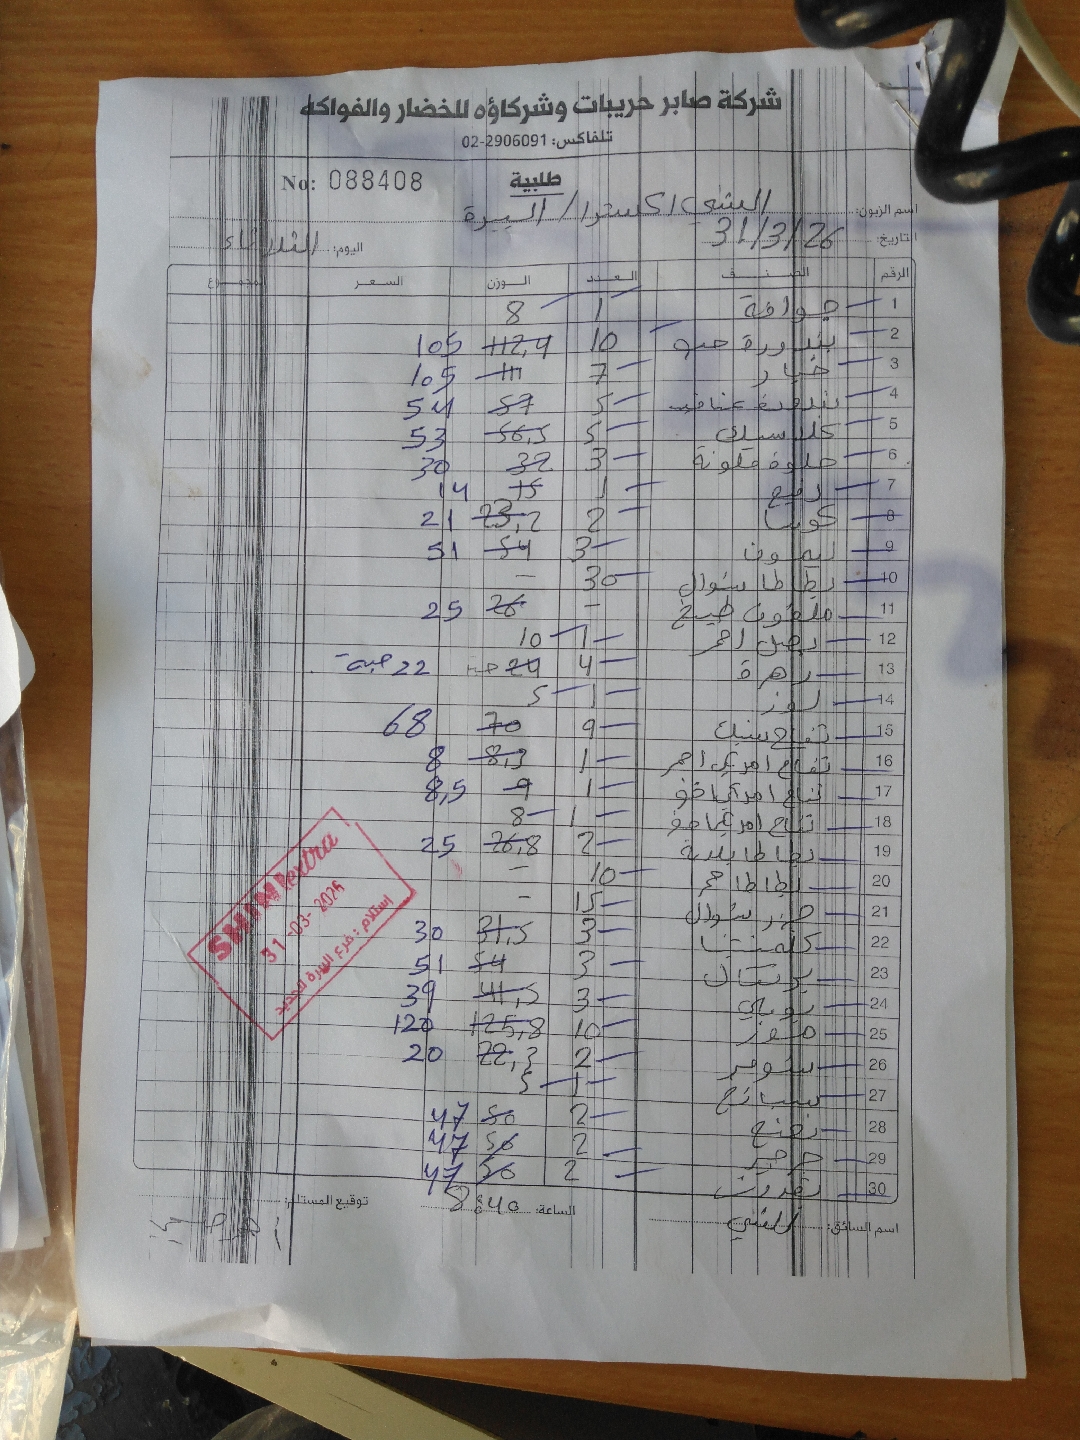 شركة صابر حريبات وشركاؤه للخضار والفواكه
تلفاكس: 02-2906091
No: 088408 طلبية
اسم الزبون: الشني اكسترا / البيرة
التاريخ: 31/3/26 اليوم: الثلاثاء
الرقم الصنف العدد الوزن السعر المجموع
1 جوافة 1 8
2 بندورة حبه 10 112,4 105
3 خيار 7 111 105
4 بندورة عناقيد 5 57 54
5 كلاسيك 5 56,5 53
6 حلوة ملونة 3 32 30
7 رفيع 1 15 14
8 كوسا 2 23,2 21
9 ليمون 3 54 51
10 بطاطا شوال 30 -
11 ملفوف طبيخ - 26 25
12 بصل احمر 1 10
13 زهرة 4 24 حبة 22 حبة
14 لوز 1 5
15 تفاح سنيك 9 70 68
16 تفاح امريكي احمر 1 8,3 8
17 تفاح امريكي 1 9 8,5
18 تفاح 1 8
19 بطاطا بلدية 2 26,8 25
20 بطاطا حمرا 10 -
21 جزر شوال 15 -
22 كلمنتينا 3 31,5 30
23 برتقال 3 54 51
24 3 41,5 39
25 موز 10 125,8 120
26 شومر 2 22,3 20
27 سبانخ 1 5
28 نعنع 2 50 47
29 جرجير 2 50 47
30 بقدونس 2 50 47
اسم السائق: الشني الساعة: 8:40 توقيع المستلم:
SHINI extra
31-03-2026
استلام: فرع البيرة الجديد